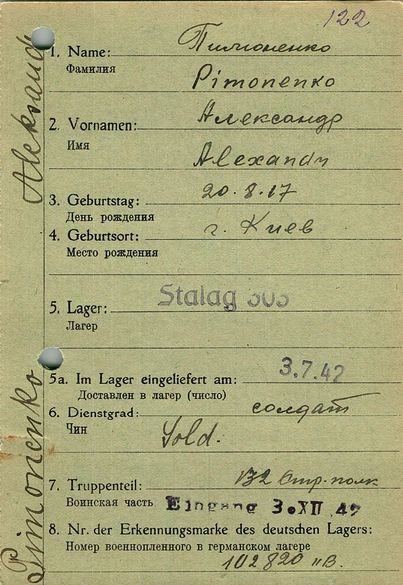 122
1. Name: Пимоненко
Фамилия
Pimonenko
2. Vornamen: Александр
Имя
Alexandr
3. Geburtstag: 20.8.17
День рождения
4. Geburtsort: г. Киев
Место рождения
5. Lager: Stalag 303
Лагер
5a. Im Lager eingeliefert am: 3.7.42
Доставлен в лагер (число)
6. Dienstgrad: солдат
Чин
Sold.
7. Truppenteil: Стр. полк
Воинская часть Eingang 3. XII 42
8. Nr. der Erkennungsmarke des deutschen Lagers:
Номер военнопленного в германском лагере
102820
Pimonenko Aleksandr